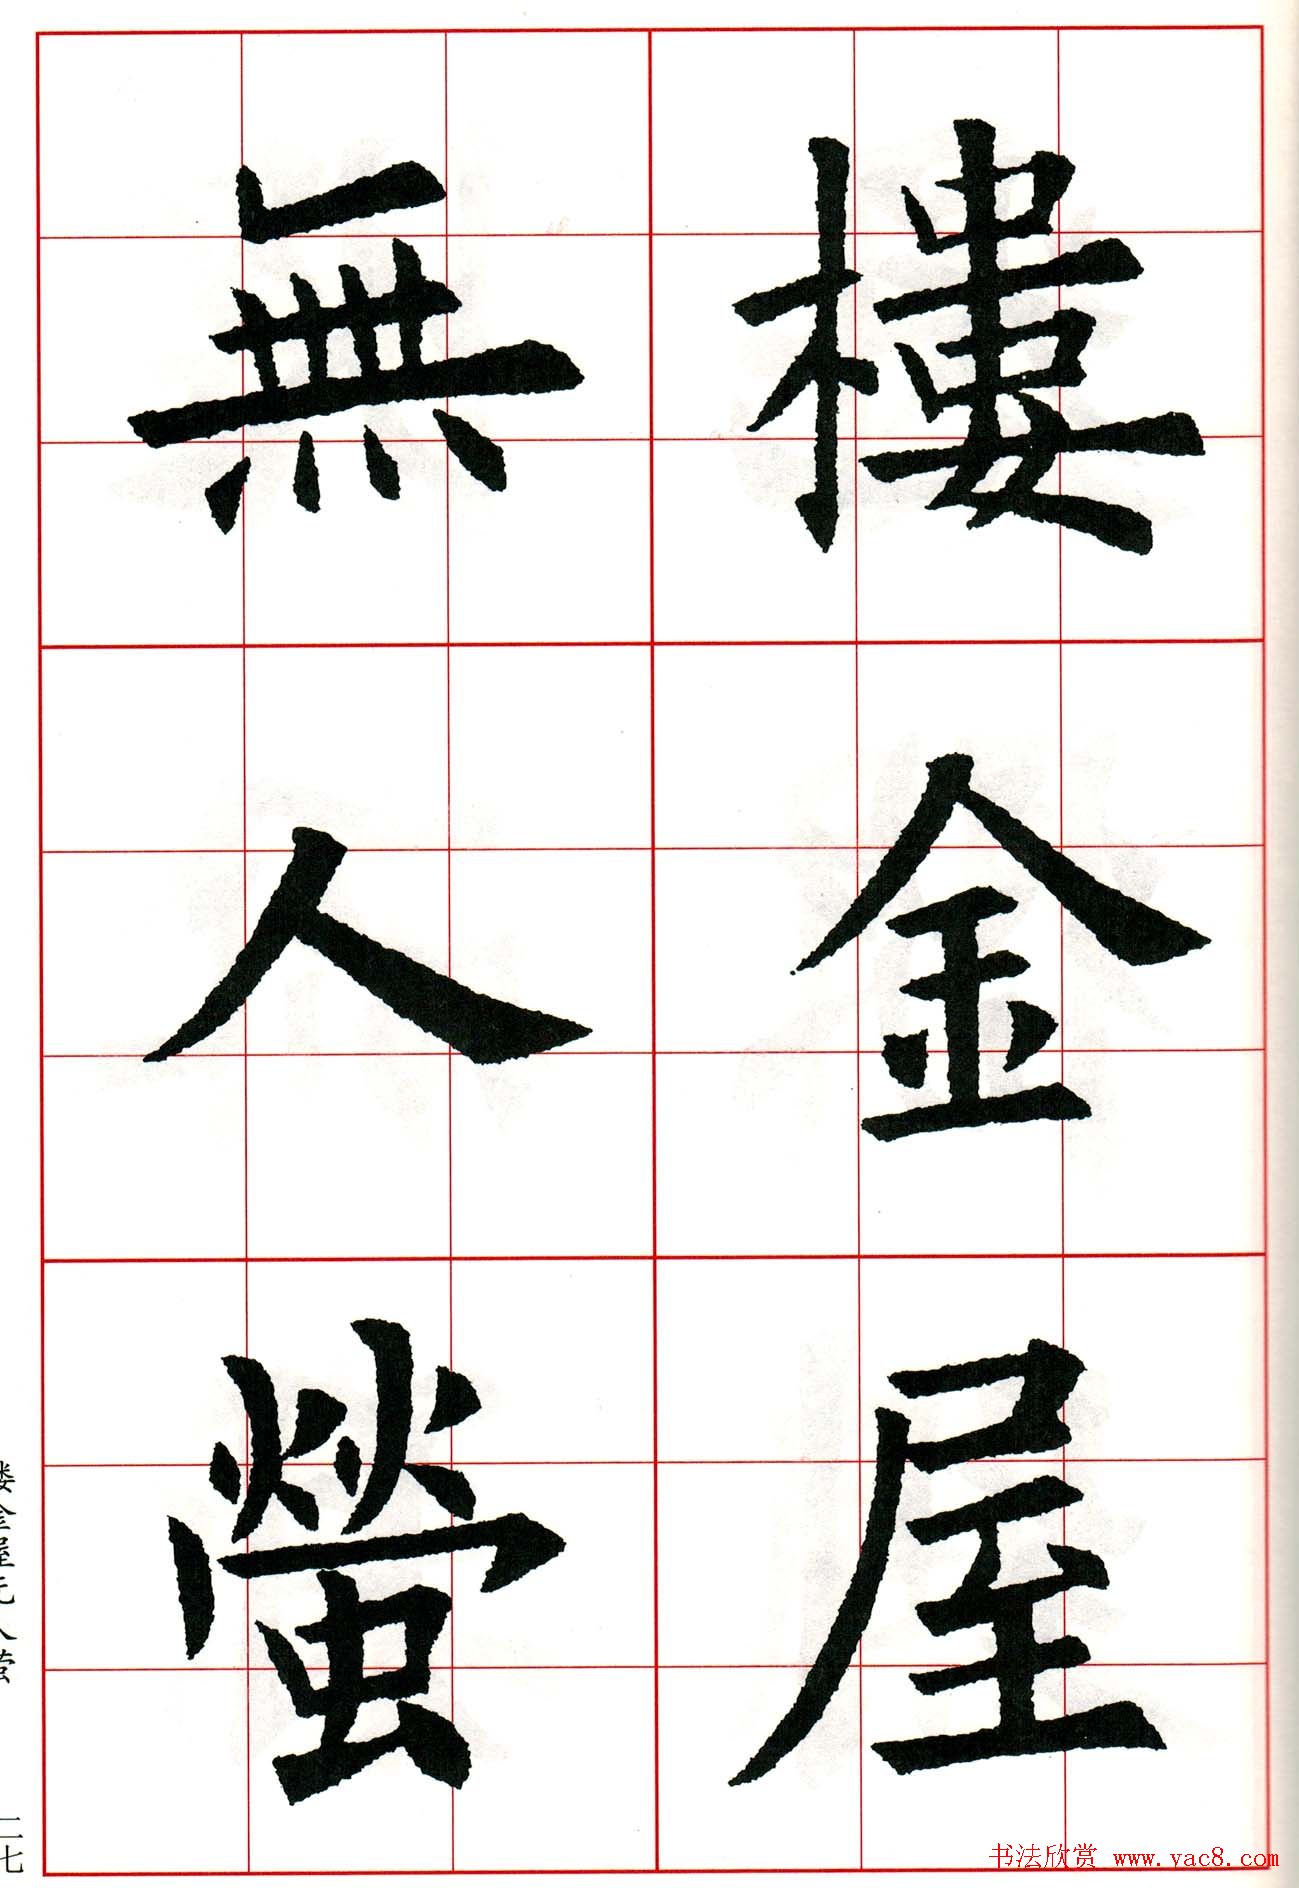 樓金屋
無人螢
楼金屋无人萤
二七
书法欣赏 www.yac8.com